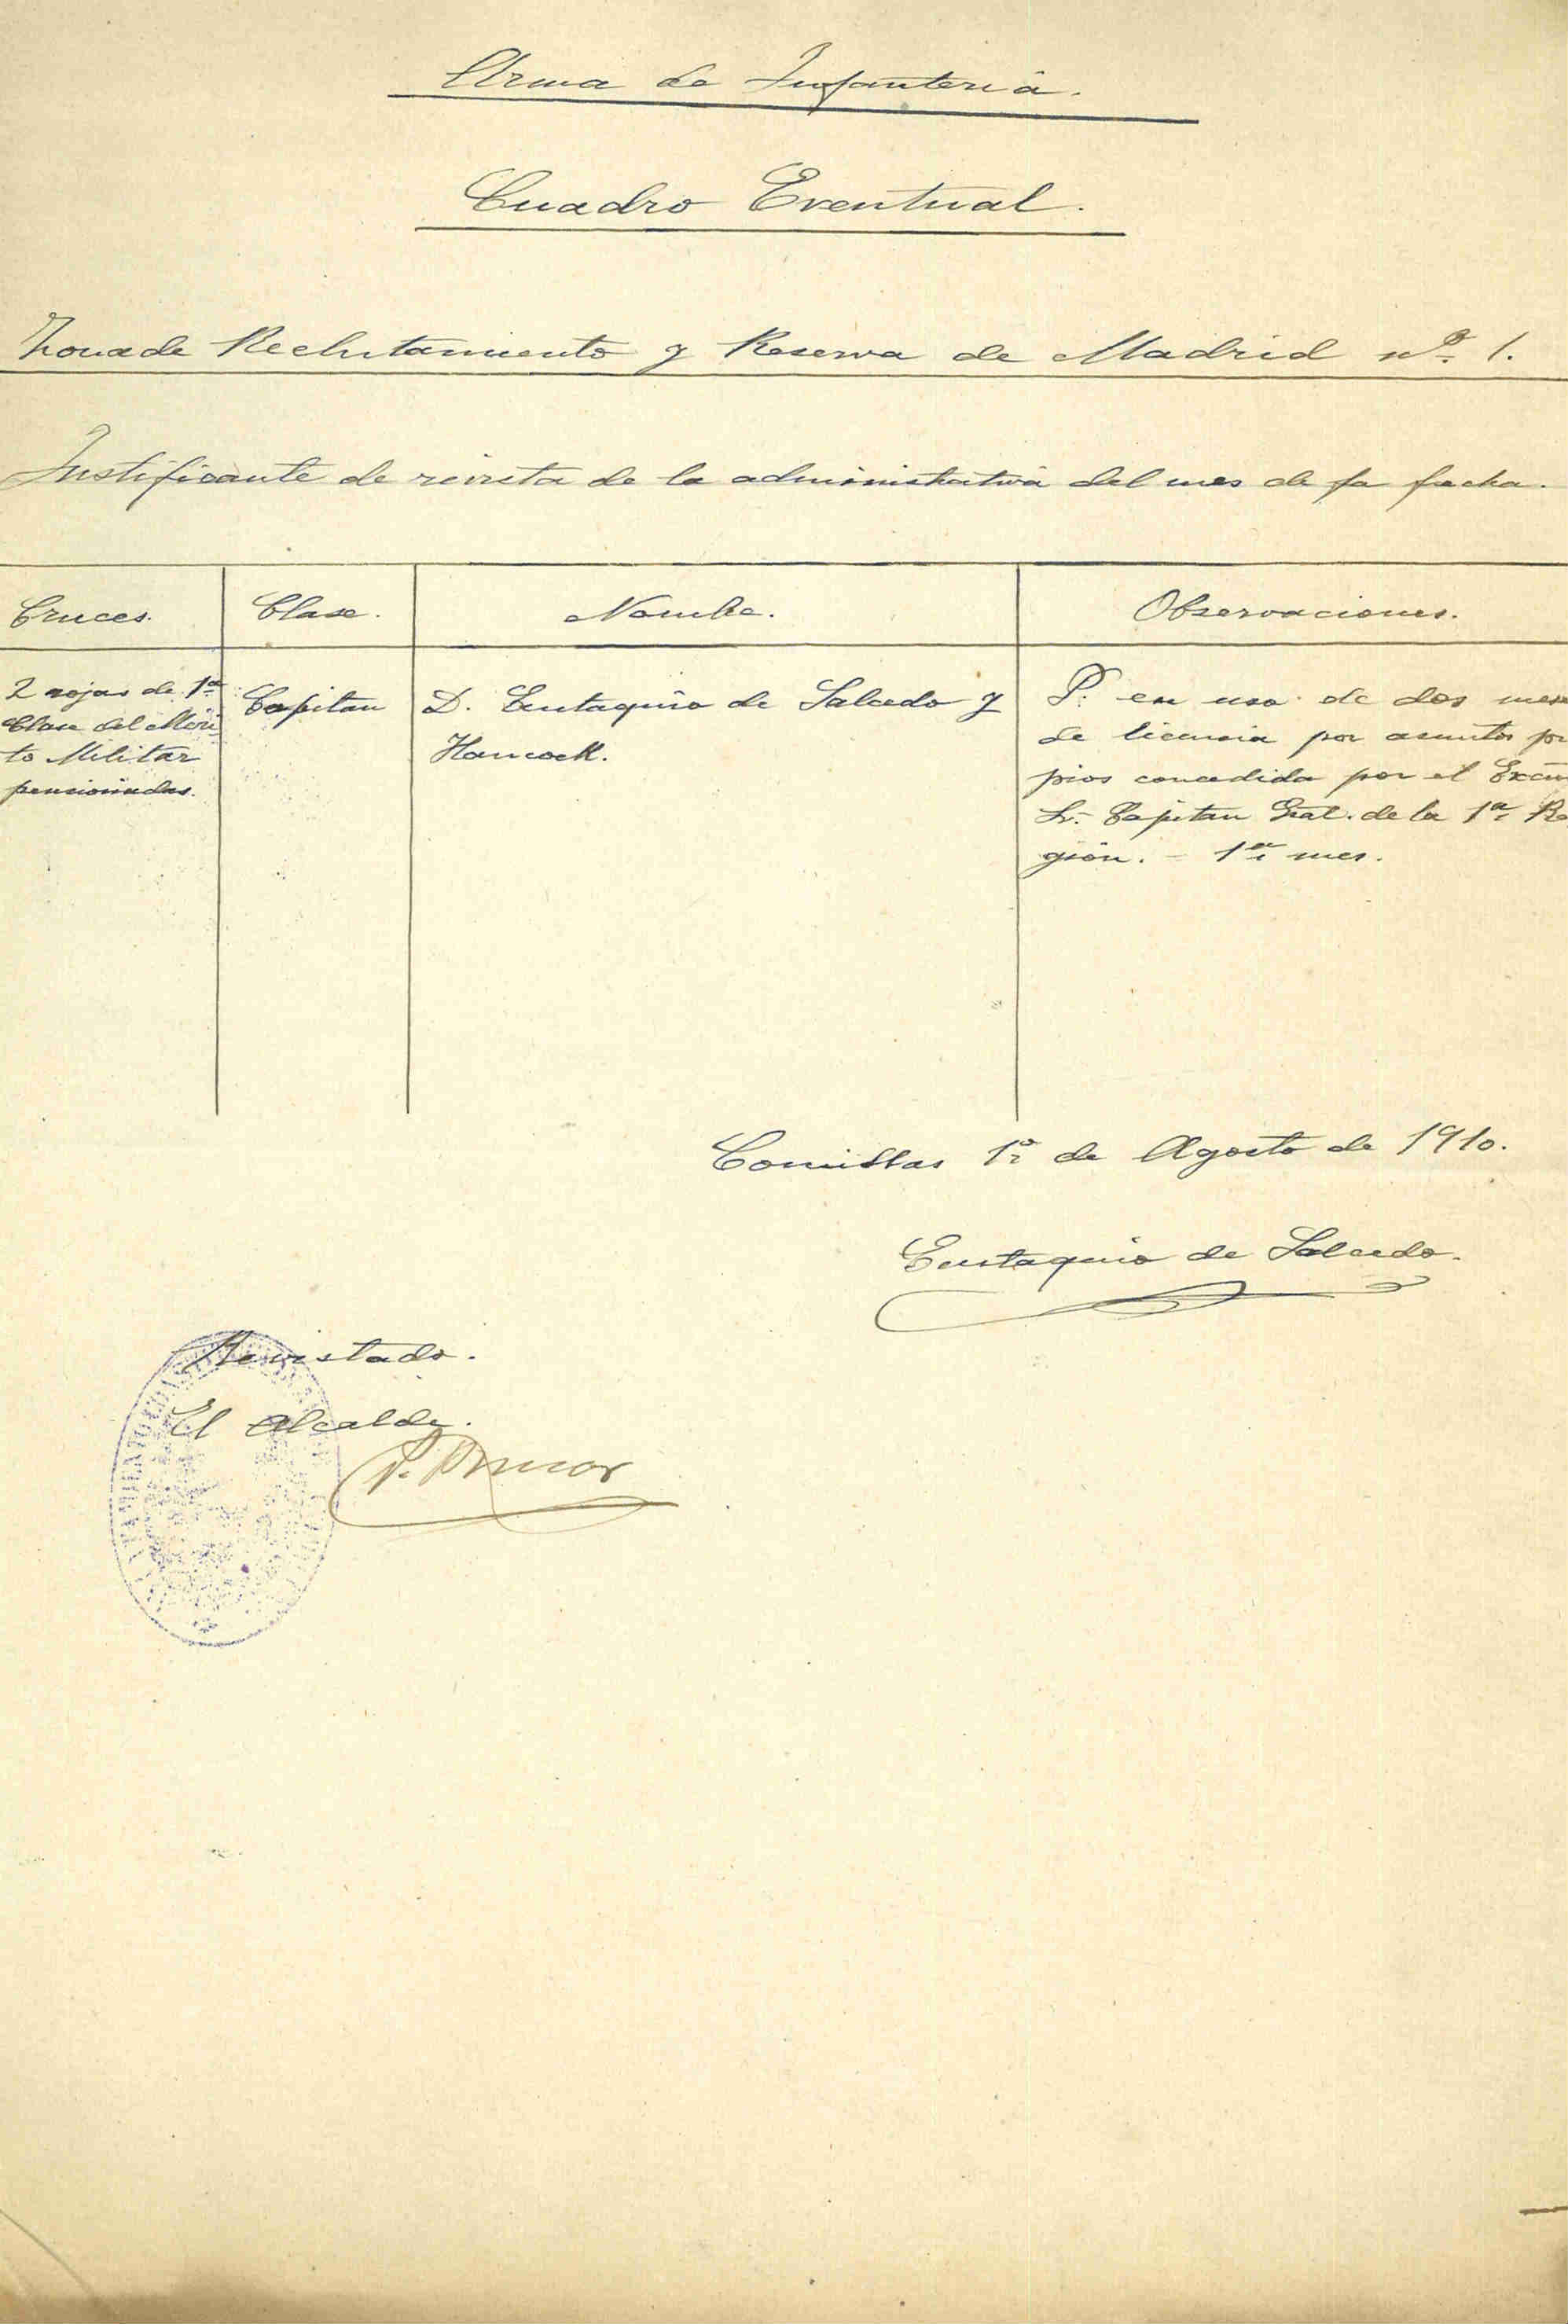 Arma de Infantería.
Cuadro Eventual.
Zona de Reclutamiento y Reserva de Madrid nº 1.
Justificante de revista de la administrativa del mes de la fecha.
Cruces. Clase. Nombre. Observaciones.
2 rojas de 1ª
Clase del Méri
to Militar
pensionadas.
Capitan
D. Eustaquio de Salcedo y
Hancock.
P. en uso de dos mese
de licencia por asuntos pro
pios concedida por el Excm
Sr. Capitan Gral. de la 1ª Re
gión. - 1er mes.
Comillas 1º de Agosto de 1910.
Eustaquio de Salcedo.
Revistado.
El Alcalde.